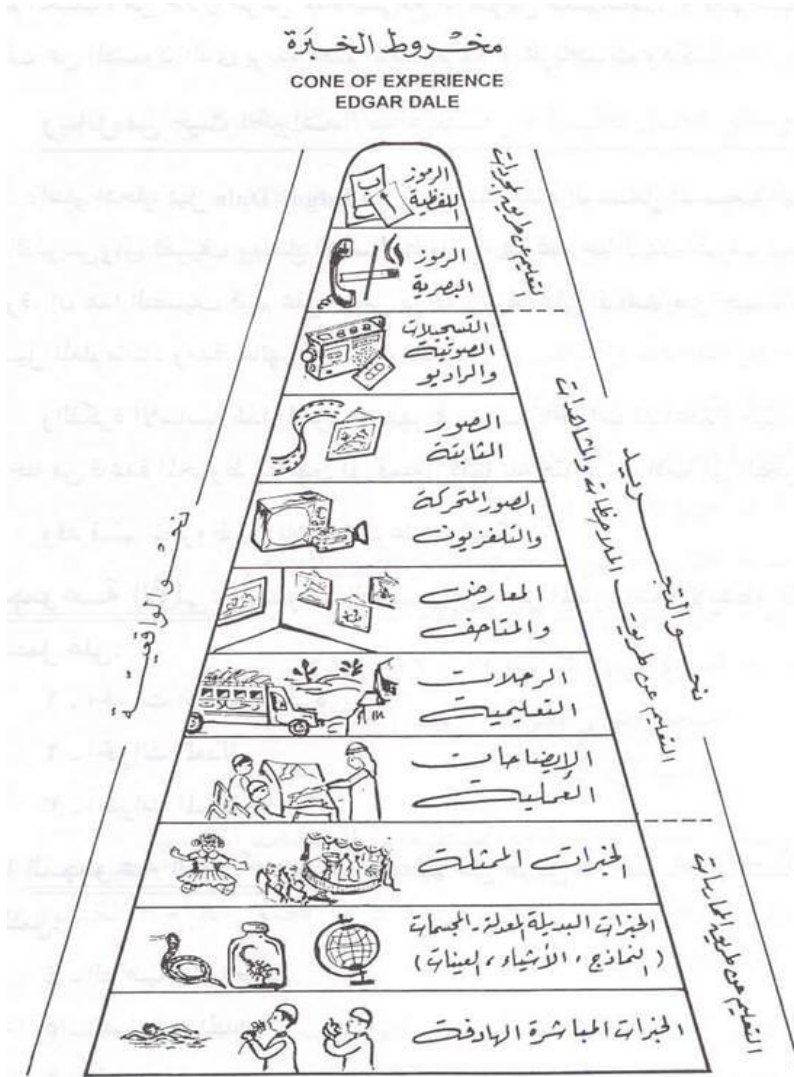 مخروط الخبرة
CONE OF EXPERIENCE
EDGAR DALE
الرموز
اللفظية
الرموز
البصرية
التسجيلات
الصوتية
والراديو
الصور
الثابتة
الصور المتحركة
والتلفزيون
المعارض
والمتاحف
الرحلات
التعليمية
الإيضاحات
العملية
الخبرات الممثلة
الخبرات البديلة المعدلة - المجسمات
(النماذج، الأشياء، العينات)
الخبرات المباشرة الهادفة
التعليم عن طريق المجردات
التعليم عن طريق الملاحظات والمشاهدات
التعليم عن طريق الممارسات
نحو التجريد
نحو الواقعية